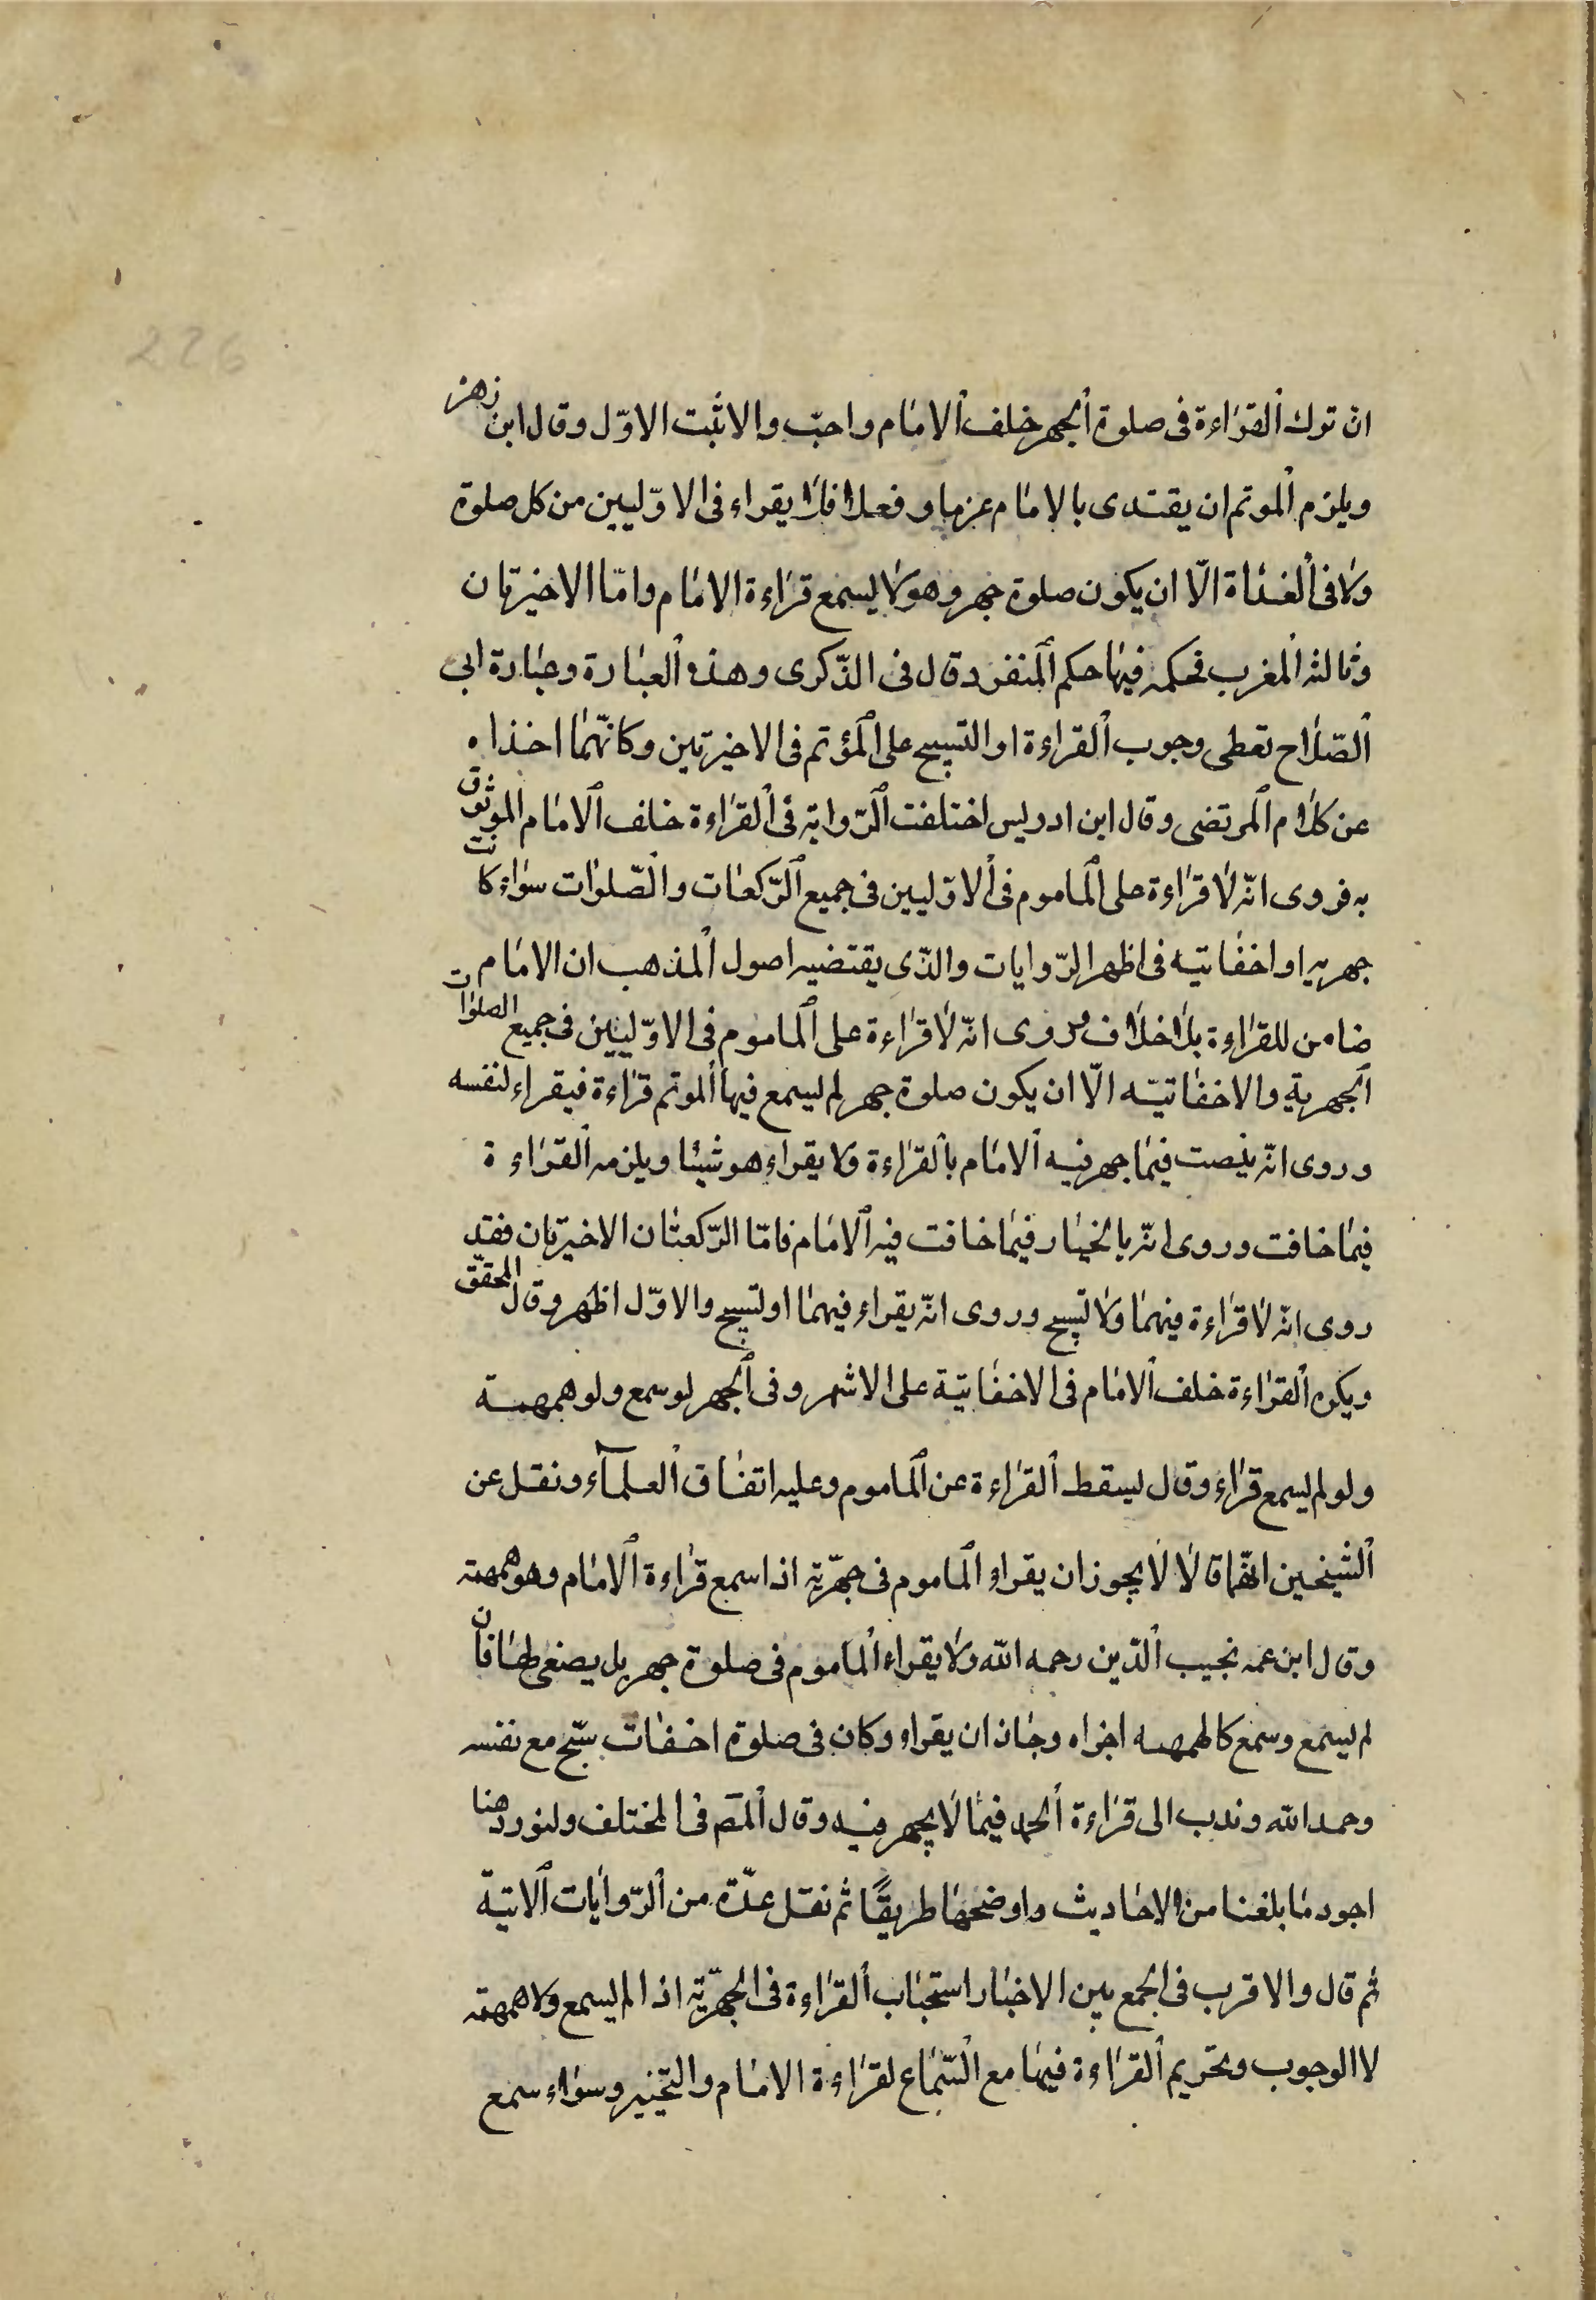 226
ان ترك القراءة فى صلوة الجهر خلف الامام واحبّ والاثبت الاوّل وقال ابن زهره
ويلزم الموتم ان يقتدى بالامام عزما و فعلا فلا يقراء فى الاوّليين من كل صلوة
ولا فى الغداة الّا ان يكون صلوة جهر وهو لا يسمع قراءة الامام وامّا الاخيرتان
وثالثه المغرب فحكمه فيها حكم المنفرد قال فى الذّكرى وهذه العبارة وعبارة ابى
الصّلاح تعطى وجوب القراءة او التسبيح على المؤتم فى الاخيرتين وكانّهما اخذاه
عن كلام المرتضى وقال ابن ادريس اختلفت الرّوايه فى القراءة خلف الامام الموثوق
به فروى انّه لا قراءة على الماموم فى الاوّليين فى جميع الرّكعات والصّلوات سواء كانت
جهريه او اخفاتيه فى اظهر الرّوايات والذّى يقتضيه اصول المذهب ان الامام
ضامن للقراءة بلا خلاف وروى انّه لا قراءة على الماموم فى الاوّليين فى جميع الصلوات
الجهرية والاخفاتيّه الّا ان يكون صلوة جهر لم يسمع فيها الموتم قراءة فيقراء لنفسه
وروى انّه ينصت فيما جهر فيه الامام بالقراءة ولا يقراء هو شيئا ويلزمه القراءة
فيما خافت وروى انّه بالخيار فيما خافت فيه الامام فامّا الرّكعتان الاخيرتان فقد
روى انّه لا قراءة فيهما ولا تسبيح وروى انّه يقراء فيهما او تسبيح والاوّل اظهر وقال المحقق
ويكره القراءة خلف الامام فى الاخفاتيّة على الاشهر وفى الجهر لو سمع ولو همهمة
ولو لم يسمع قراء وقال يسقط القراءة عن الماموم وعليه اتفاق العلمآء ونقل عن
الشيخين انّهما قالا لا يجوز ان يقراء الماموم فى جهريّه اذا سمع قراءة الامام وهو همهمة
وقال ابن عمه نجيب الدّين رحمه الله ولا يقراء الماموم فى صلوة جهر بل يصغى لها فان
لم يسمع وسمع كالهمهمه اجزاه وجاز ان يقراء وكان فى صلوة اخفات سبّح مع نفسه
وحمد الله وندب الى قراءة الحمد فيما لا يجهر فيه وقال المص فى المختلف ولنورد هنا
اجود ما بلغنا من الاحاديث واوضحها طريقًا ثم نقل عدّة من الرّوايات الاتية
ثم قال والاقرب فى الجمع بين الاخبار استحباب القراءة فى الجهريّه اذا لم يسمع ولا همهمة
لا الوجوب وتحريم القراءة فيها مع السّماع لقراءة الامام والتخيير وسواء سمع